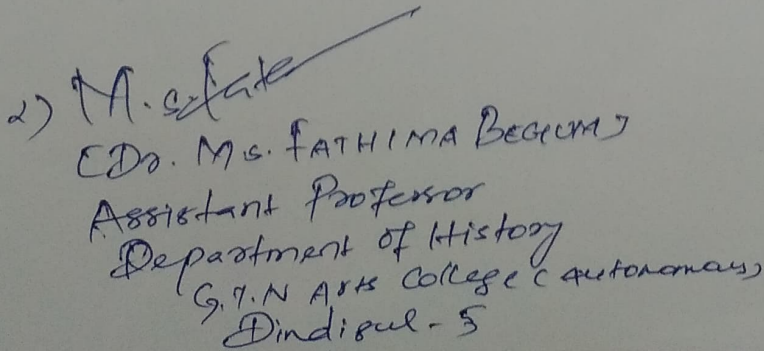 2) M.S. Fate
[Dr. M.S. FATHIMA BEGUM]
Assistant Professor
Department of History
G.T.N Arts College (Autonomous)
Dindigul - 5